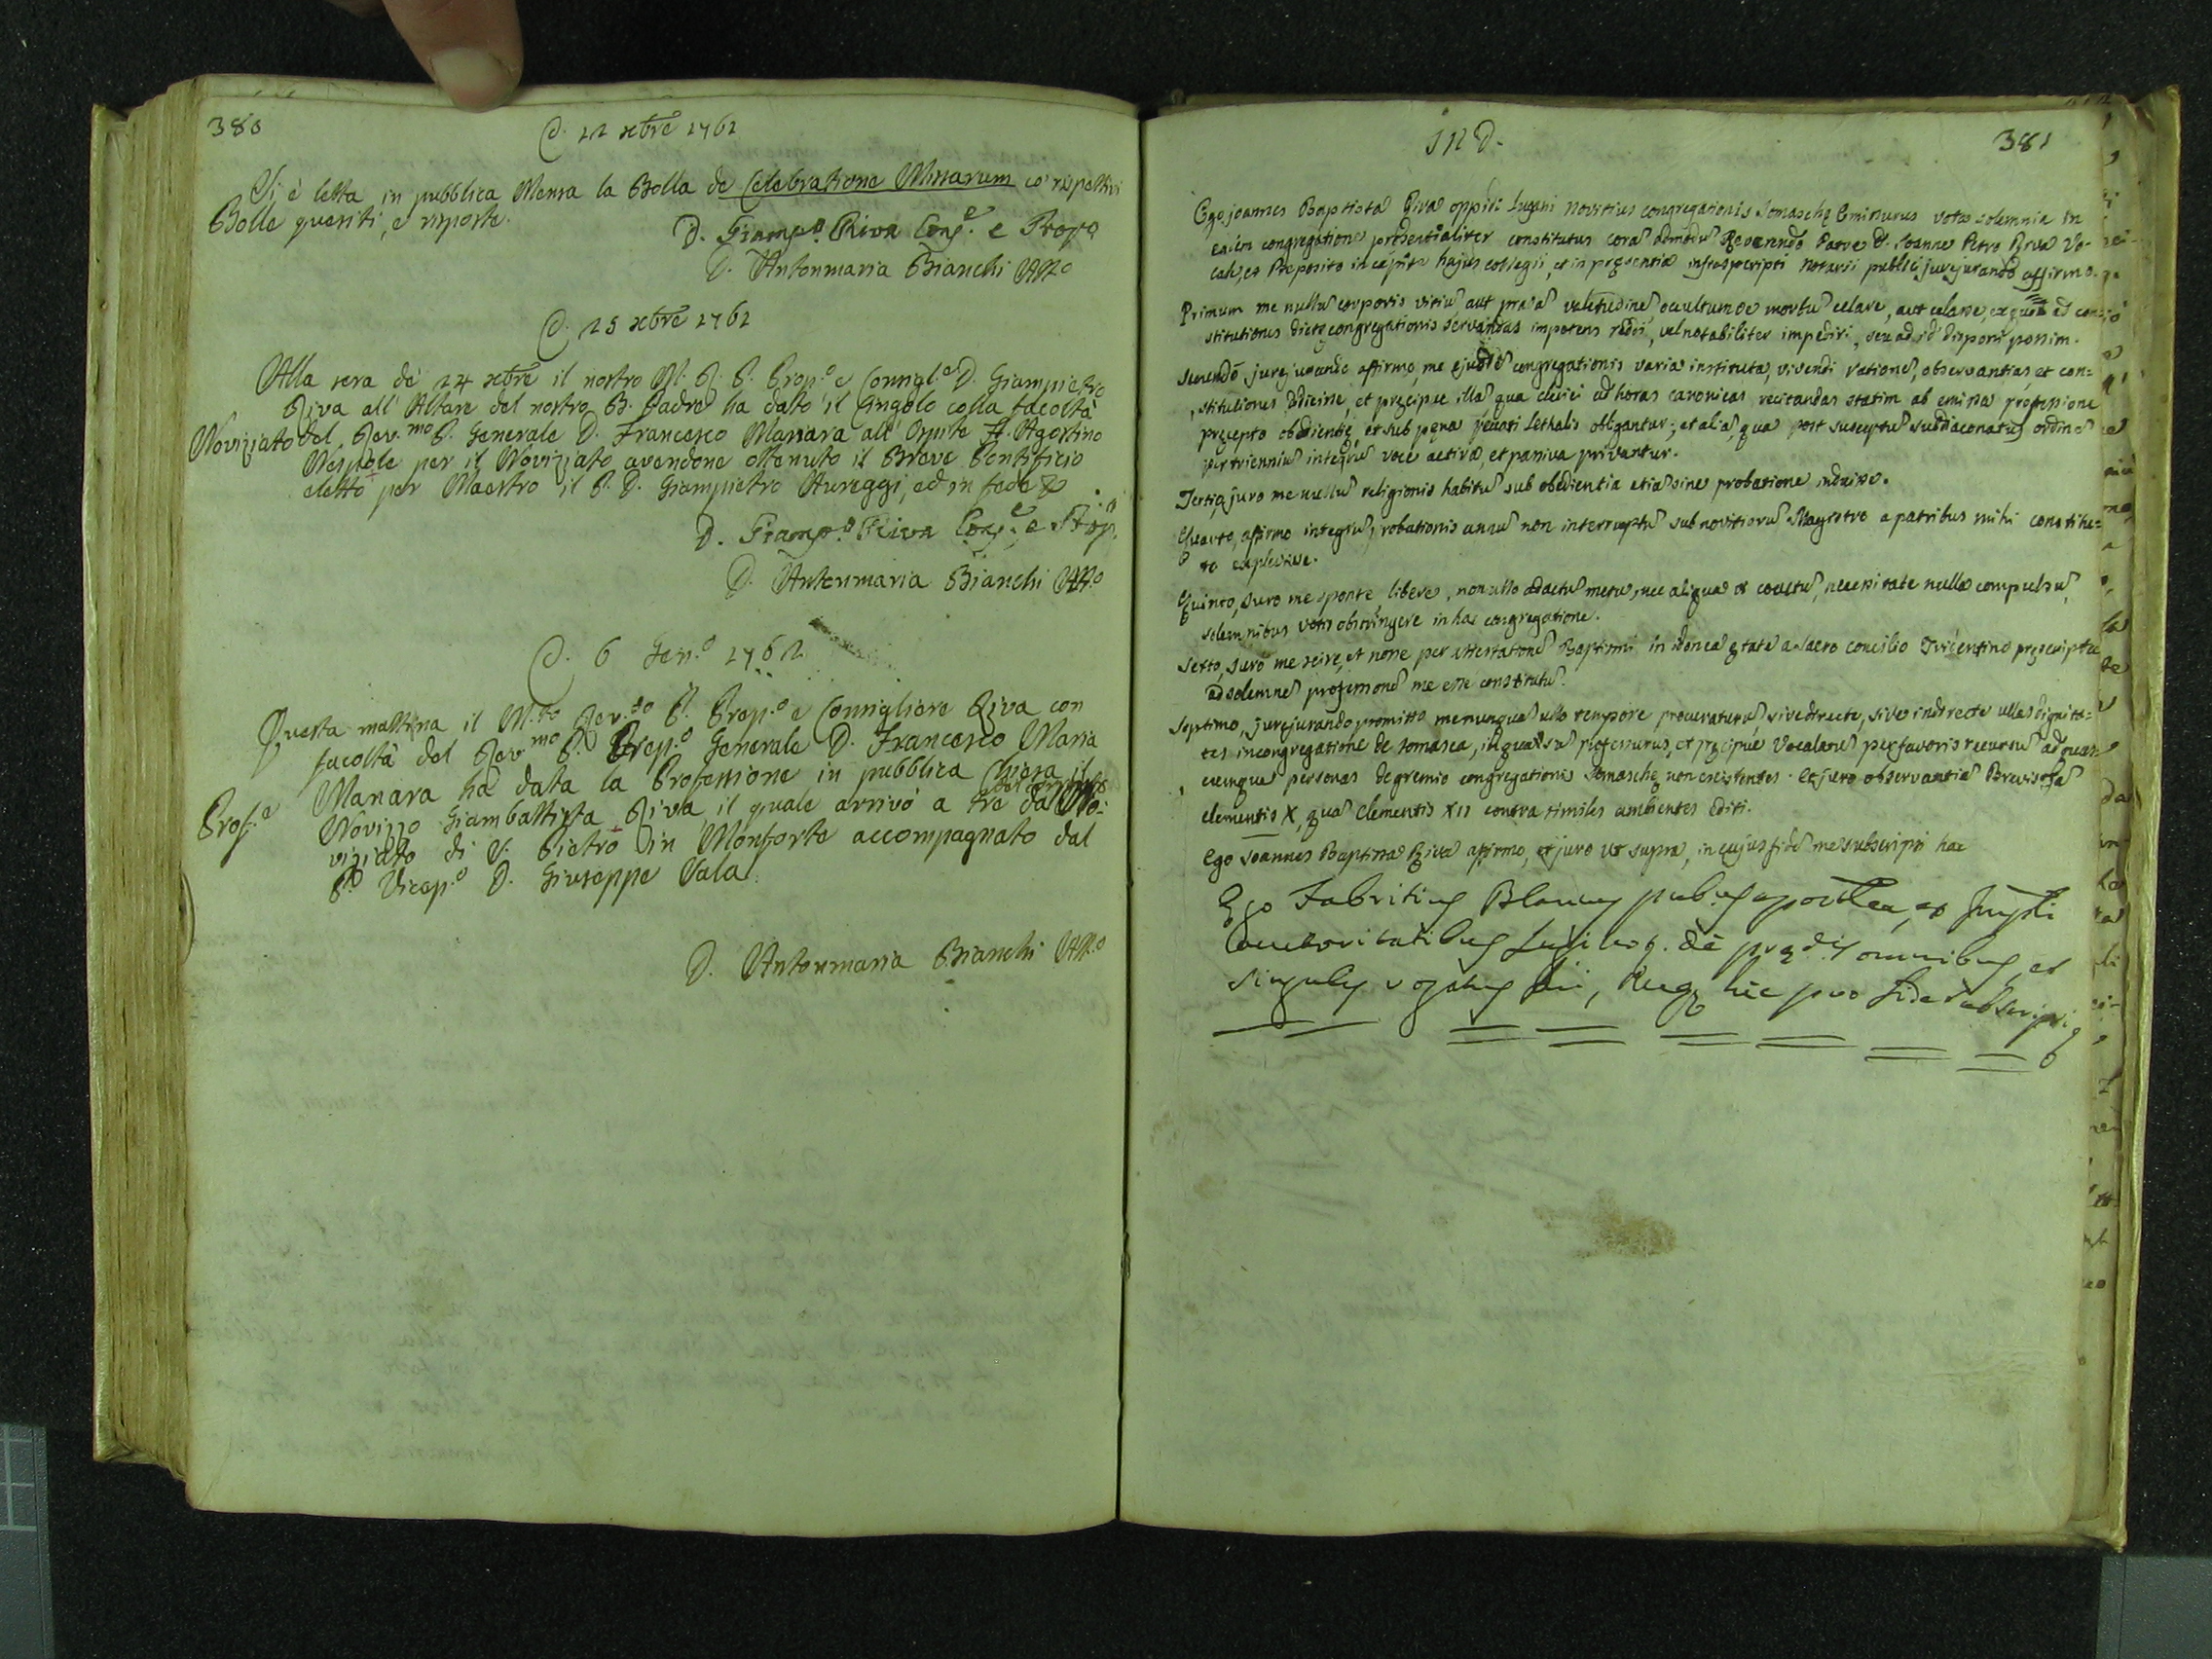 380
D. 22 xbre 1761
Si è letta in pubblica Mensa la Bolla de Celebratione Missarum co' rispettivi
Bolle quesiti, e risposte.
D. Giamp.o Riva Cons.e e Prop.o
D. Antonmaria Bianchi Att.o
D. 25 xbre 1761
Alla sera de' 24 xbre il nostro M. R. P. Prep.o e Consigl.e D. Giampietro
Riva all' Altare del nostro B. Padre ha dato il Cingolo colla facoltà
Noviziato del Rev.mo P. Generale D. Francesco Manara all' Ospite Agostino
Nespole per il Noviziato avendone ottenuto il Breve Pontificio
eletto per Maestro il P. D. Giampietro Aureggi, ed in fede
D. Giamp.o Riva Cons.e e Prop.
D. Antonmaria Bianchi Att.o
D. 6 Gen.o 1762
Questa mattina il M.to Rev.do P. Prep.o e Consigliere Riva con
facoltà del Rev.mo P. Prep.o Generale D. Francesco Maria
Manara ha data la Professione in pubblica Chiesa il
Prof.e Novizzo Giambattista Riva, il quale arrivò a tre dal No-
viziato di S. Pietro in Monforte accompagnato dal
P. Vicep.o D. Giuseppe Sala.
D. Antonmaria Bianchi Att.o
IND.
381
Ego Joannes Baptista Riva oppidi Lugani novitius congregationis Somaschę emissurus vota solemnia in
eadem congregatione presentialiter constitutus corã admodũ Reverendo Patre D. Joanne Petro Riva Vo-
cali, et Preposito in capite hujus collegii, et in pręsentia infrascripti Notarii publici jurejurando affirmo.
Primum me nullũ corporis vitiũ, aut pravã valetudinẽ, occultumve morbũ celare, aut celasse, ex quo ad con-
stitutiones dictę congregationis servandas impotens reddi, vel notabiliter impediri, seu ad id disponi possim.
Secundõ jurejurando affirmo, me ejusdẽ congregationis varia instituta, vivendi rationẽ, observantias, et con-
stitutiones didicisse, et pręcipue illã, qua clerici ad horas canonicas recitandas statim ab emissa professione
pręcepto obedientię, et sub pęna peccati lethalis obligantur; et aliã, qua post susceptũ subdiaconatus ordinẽ
per trienniũ integrũ voce activa, et passiva privantur.
Tertio, juro me nullũ religionis habitũ sub obedientia etiã sine probatione induisse.
Quarto, affirmo integrũ probationis annũ non interruptũ sub novitiorũ Magistro a patribus mihi constitu-
to explevisse.
Quinto, juro me sponte libere, non ullo adactũ metu, nec aliqua vi coactũ, necessitate nulla compulsũ,
solemnibus votis obstringere in hac congregatione.
Sexto, juro me scire, et nosse per attestationẽ Baptismi in idonea ętate a Sacro concilio Tridentino pręscripta
ad solemnẽ professionẽ me esse constitutũ.
Septimo, jurejurando promitto me nunquã ullo tempore procuraturũ sive directe, sive indirecte ullas dignita-
tes in congregatione de Somasca, in qua sũ professurus, et pręcipue Vocalatũ per favoris recursũ ad quas-
cumque personas de gremio congregationis Somaschę non existentes. Et juro observantiã Brevis tã
clementis X, quã Clementis XII contra similes ambientes editi.
Ego Joannes Baptista Riva affirmo, et juro ut supra, in cujus fidẽ me subscripsi hac
Ego Fabritius Blancus publ.s ap.ca, ex
auctoritatibus de prędis omnibus, et
singulis rogatus fui, hic pro fide subscripsi